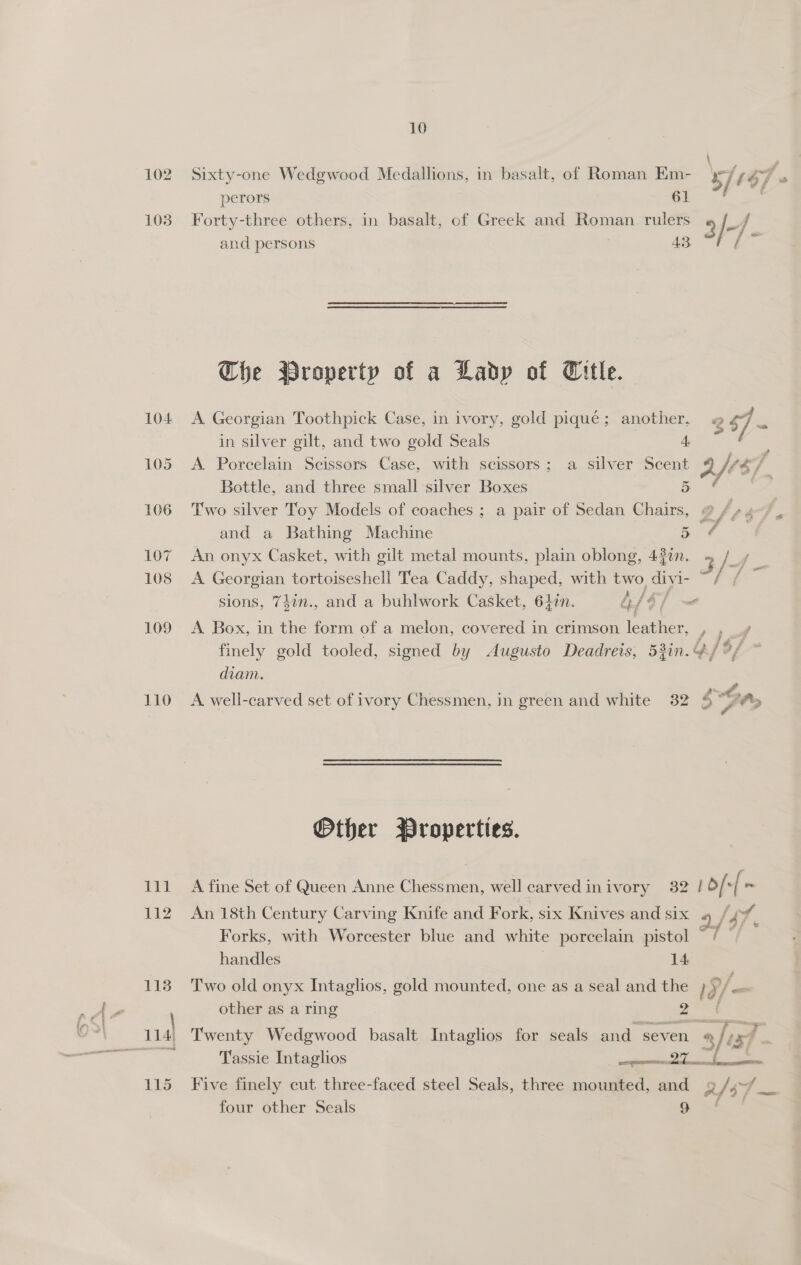 10
102 Sixty-one Wedgwood Medallions, in basalt, of Roman Em-
perors 61
103 Forty-three others, in basalt, of Greek and Roman rulers 3/-/-
and persons 43
The Property of a Lady of Title.
104 A Georgian Toothpick Case, in ivory, gold piqué; another,
in silver gilt, and two gold Seals 4
105 A Porcelain Scissors Case, with scissors; a silver Scent
Bottle, and three small silver Boxes 5
106 Two silver Toy Models of coaches; a pair of Sedan Chairs,
and a Bathing Machine 5
107 An onyx Casket, with gilt metal mounts, plain oblong, 4¾in. 3/-/-
108 A Georgian tortoiseshell Tea Caddy, shaped, with two divi-
sions, 7½in., and a buhlwork Casket, 6½in.
109 A Box, in the form of a melon, covered in crimson leather,
finely gold tooled, signed by Augusto Deadreis, 5¾in.
diam.
110 A well-carved set of ivory Chessmen, in green and white 32 5 Gns
Other Properties.
111 A fine Set of Queen Anne Chessmen, well carved in ivory 32
112 An 18th Century Carving Knife and Fork, six Knives and six
Forks, with Worcester blue and white porcelain pistol
handles 14
113 Two old onyx Intaglios, gold mounted, one as a seal and the
other as a ring 2
114 Twenty Wedgwood basalt Intaglios for seals and seven
Tassie Intaglios 27
115 Five finely cut three-faced steel Seals, three mounted, and
four other Seals 9